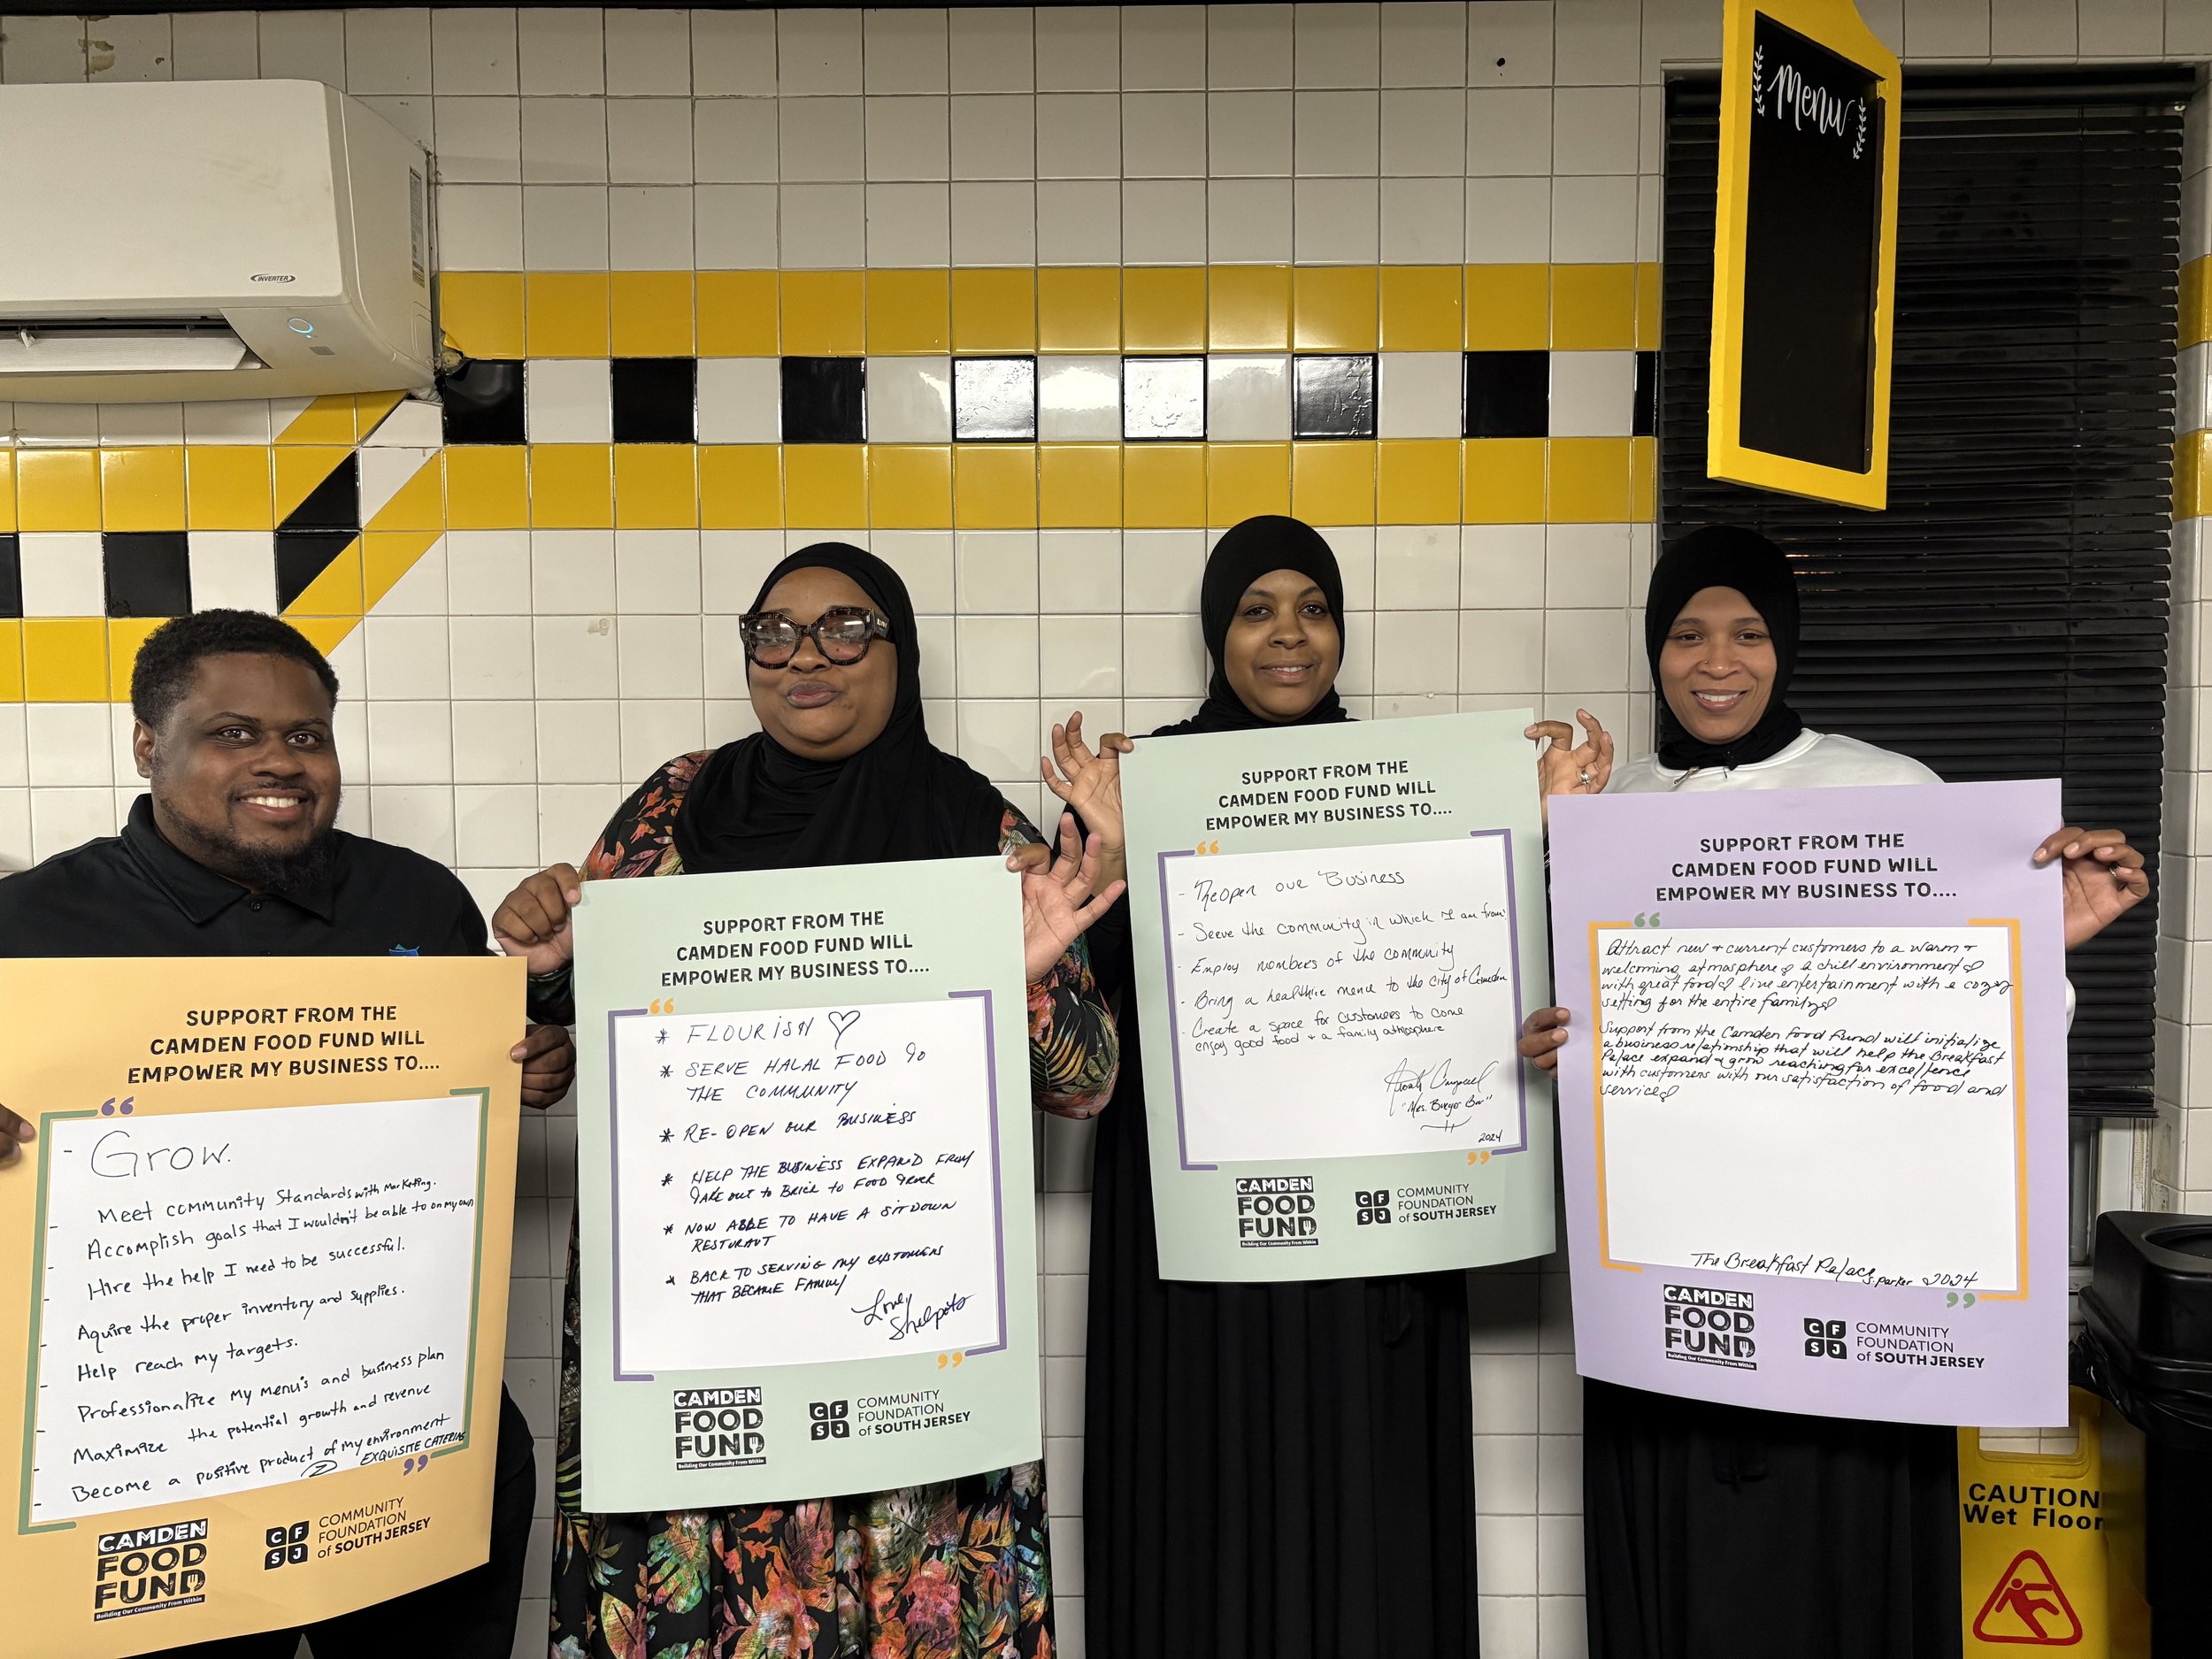 INVERTER
Menu
SUPPORT FROM THE
CAMDEN FOOD FUND WILL
EMPOWER MY BUSINESS TO....
- Grow.
- Meet community Standards with Marketing.
- Accomplish goals that I wouldn't be able to on my own
- Hire the help I need to be successful.
- Aquire the proper inventory and supplies.
- Help reach my targets.
- Professionalize my menu's and business plan
- Maximize the potential growth and revenue
- Become a positive product of my environment
EXQUISITE CATERING
CAMDEN
FOOD
FUND
Building Our Community From Within
CF
SJ
COMMUNITY
FOUNDATION
of SOUTH JERSEY
SUPPORT FROM THE
CAMDEN FOOD FUND WILL
EMPOWER MY BUSINESS TO....
* FLOURISH ♡
* SERVE HALAL FOOD to
THE COMMUNITY
* RE-OPEN OUR BUSINESS
* HELP THE BUSINESS EXPAND FROM
TAKE OUT TO BRICK TO FOOD TRUCK
* NOW ABLE TO HAVE A SITDOWN
RESTURAUT
* BACK TO SERVING MY CUSTOMERS
THAT BECAME FAMILY
CAMDEN
FOOD
FUND
Building Our Community From Within
CF
SJ
COMMUNITY
FOUNDATION
of SOUTH JERSEY
SUPPORT FROM THE
CAMDEN FOOD FUND WILL
EMPOWER MY BUSINESS TO....
- ReOpen our Business
- Serve the community in which I am from
- Employ members of the community
- Bring a healthire menu to the city of Camden
- Create a space for customers to come
enjoy good food & a family
2024
CAMDEN
FOOD
FUND
Building Our Community From Within
CF
SJ
COMMUNITY
FOUNDATION
of SOUTH JERSEY
SUPPORT FROM THE
CAMDEN FOOD FUND WILL
EMPOWER MY BUSINESS TO....
Attract new + current customers to a warm +
welcoming atmosphere, a chill environment,
with great food, live entertainment with a cozy
setting for the entire family.
Support from the Camden Food Fund will initialize
a business relationship that will help the Breakfast
Palace expand & grow reaching for excellence
with customers with our satisfaction of food and
service.
The Breakfast Palace
S. Parker 2024
CAMDEN
FOOD
FUND
Building Our Community From Within
CF
SJ
COMMUNITY
FOUNDATION
of SOUTH JERSEY
CAUTION
Wet Floor